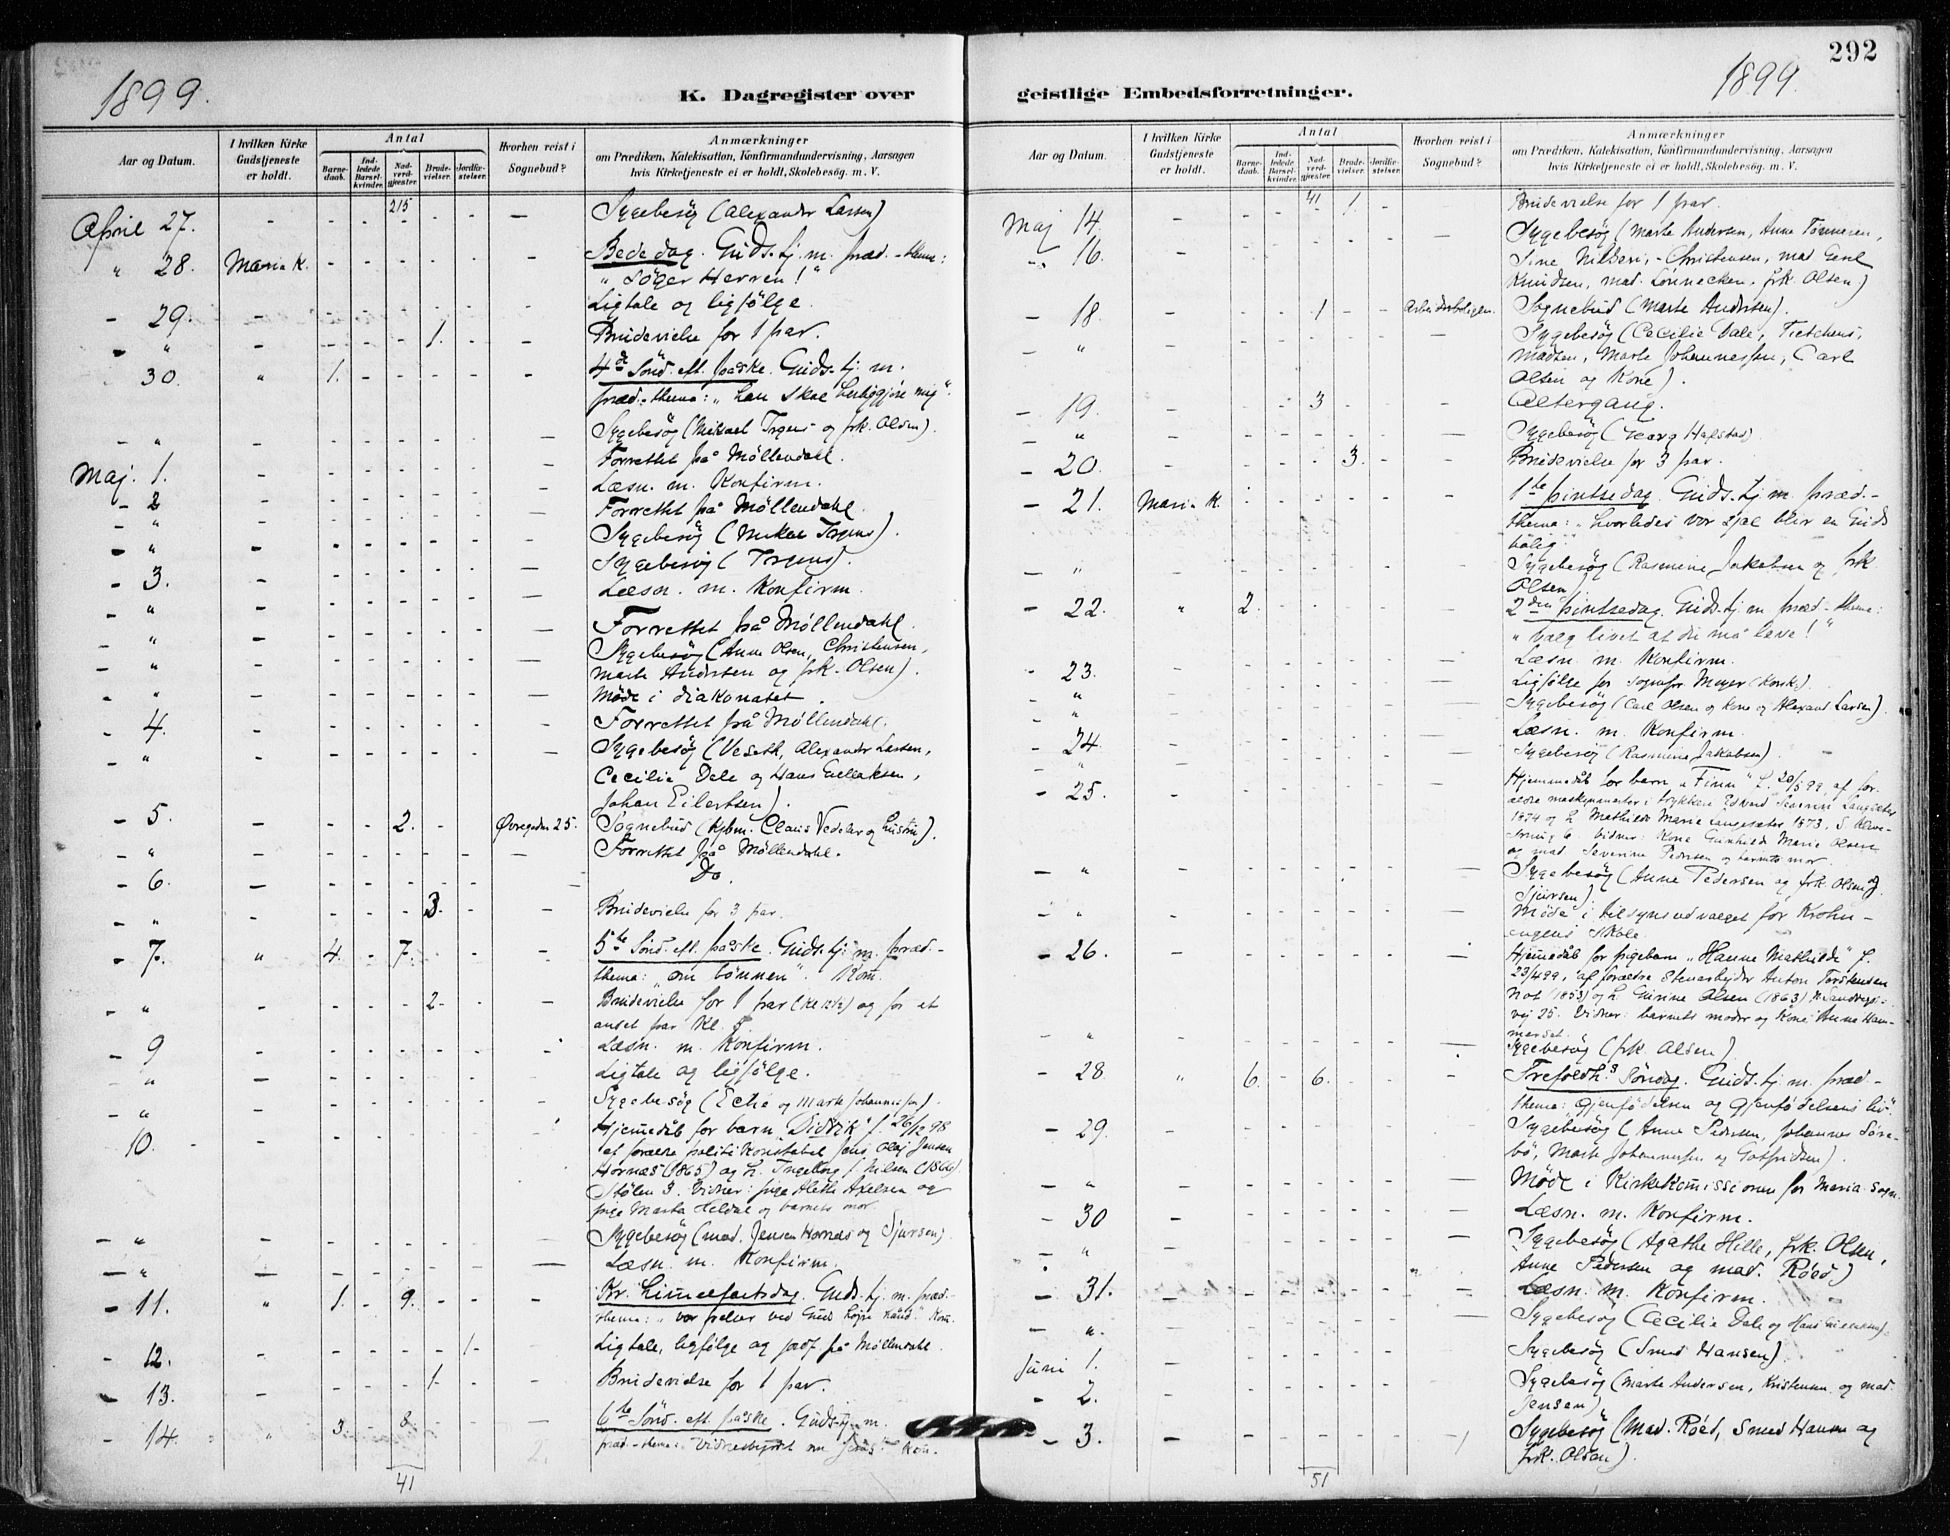 292
1899.
1899.
K. Dagregister over
geistlige Embedsforretninger.
Aar og Datum.
I hvilken Kirke
Gudstjeneste
er holdt.
Antal
Barne-
daab.
Ind-
ledede
Barsel-
kvinder.
Nad-
verd-
gjester.
Brude-
vielser.
Jordfæ-
stelser.
Hvorhen reist i
Sognebud?
Anmærkninger
om Prædiken, Katekisation, Konfirmandundervisning, Aarsagen
hvis Kirketjeneste ei er holdt, Skolebesøg. m. V.
215
April 27. Sygebesøg (Alexander Larsen)
" 28. Maria K. Bededag. Guds.tj. m. præd. - thema:
"Søger Herren!"
- 29. Ligtale og ligfølge.
- " 1. Brudevielse for 1 par.
30. " 1. 4de Sönd. eft. paaske. Guds.tj. m.
præd. - thema: "han skal herliggjøre mig".
- " Sygebesøg (Mikael Irgens og frk. Olsen).
Maj. 1. Forrettet på Møllendahl.
- 2 Læsn. m. Konfirm.
- " Forrettet på Møllendahl.
- " Sygebesøg (Mikael Irgens).
- 3. Sygebesøg (Irgens).
- " Læsn. m. Konfirm.
- " Forrettet på Møllendahl.
- " Sygebesøg (Anne Olsen, Christensen,
Marte Andersen og frk. Olsen).
- " Møde i diakonatet.
- 4. Forrettet på Møllendahl.
- " Sygebesøg (Veseth, Alexander Larsen,
Cecilie Dale og Hans Eellaksen,
Johan Eilertsen).
- 5. 2. Øvregaden 25. Sognebud (Kjbm. Claus Vedeler og hustru).
- " Forrettet på Møllendahl.
- 6. Do.
- " 3. Brudevielse for 3 par.
- 7. " 4. 7. 5te Sönd. eft. paaske. Guds.tj. m. præd-
thema: "om bønnen". Kom.
- " 2. Brudevielse for 1 par (kl 12½) og for et
andet par kl. 5.
- 9 Læsn. m. Konfirm.
- " Ligtale og ligfølge.
- " Sygebesøg (Echie og Marte Johannesen).
10. Hjemmedåb for barn "Didrik" f. 26/12 98
af forældre politikonstabel Jens Olaj Jensen
Hornæs (1865) og h. Ingeborg f. Nilsen (1866).
Stølen 3. Vidner: pige Alethe Axelsen og
pige Marta Heldal og barnets mor.
- " Sygebesøg (mad. Jensen Hornæs og Sjursen).
- " Læsn. m. Konfirm.
- 11. " 1. 9. Kr. himmelfartsdag. Guds.tj. m. præd-
thema: "vor frelser ved Guds højre hånd". Kom.
- 12. 1. Ligtale, ligfølge og jordf. på Møllendahl.
- 13. 1. Brudevielse for 1 par.
- 14. " 3. 8 6te Sönd. eft. paaske. Guds.tj. m.
præd - thema: Vidnesbyrdet om Jesus. Kom.
41
Aar og Datum.
I hvilken Kirke
Gudstjeneste
er holdt.
Antal
Barne-
daab.
Ind-
ledede
Barsel-
kvinder.
Nad-
verd-
gjester.
Brude-
vielser.
Jordfæ-
stelser.
Hvorhen reist i
Sognebud?
Anmærkninger
om Prædiken, Katekisation, Konfirmandundervisning, Aarsagen
hvis Kirketjeneste ei er holdt, Skolebesøg. m. V.
41
Maj 14. 1. Brudevielse for 1 par.
- 16. Sygebesøg (Marte Andersen, Anne Tønnesen,
Sine Nilsen, - Christensen, mad
Knudsen, mad. Lønnecken, frk. Olsen)
- 18. 1 Arbeiderboligen. Sognebud (Marte Andersen).
" Sygebesøg (Cecilie Dale, Tietchens,
Madsen, Marte Johannessen, Carl
Olsen og Kone).
- 19. 3 Altergang.
- " Sygebesøg (Georg Hafstad)
- 20. 3. Brudevielse for 3 par.
- 21. Maria K. 1te pintsedag. Guds.tj. m. præd. -
thema: "hvorledes vor sjæl blir en Guds
bolig"
- " Sygebesøg (Rasmine Jakobsen og frk.
Olsen)
- 22. " 2. 2den pintsedag. Guds.tj. m. præd - thema:
"vælg livet at du må leve!"
- 23. Læsn. m. Konfirm.
" Ligfølge for sognepr. Meyer (Korsk.).
" Sygebesøg (Carl Olsen og kone og Alexand. Larsen).
- 24. Læsn. m. Konfirm.
" Sygebesøg (Rasmine Jakobsen).
- 25. Hjemmedåb for barn "Finn" f. 20/5 99, af for-
ældre maskinmester i trykkeri Edvard Severin Langsæter
1874 og h. Mathilde Marie Langesæter 1873,
6. Vidner: Kone Gunhild Marie Olsen
og mad. Severine Pedersen og barnets mor.
- " Sygebesøg (Anne Pedersen og frk. Olsen og
Sjursen).
- " Møde i tilsynsudvalget for Krohn-
engens Skole.
- 26. Hjemmedåb for pigebarn "Hanne Mathilde" f.
23/4 99, af forældre stenarbejder Anton Torstensen
Not (1853) og h. Gurine Olsen (1863) N. Sandvigs-
vej 25. Vidner: barnets moder og Kone Anne Ham-
merset.
" Sygebesøg (frk. Olsen)
- 28. " 6. 6. Trefoldh.s Søndag. Guds.tj. m. præd -
thema: Gjenfødelsen og Gjenfødelsens liv".
- 29. Sygebesøg (Anne Pedersen, Johannes Søre-
bø, Marte Johannessen og Gotfridsen).
- " Møde i Kirkekomissionen for Maria sogn.
- 30 Læsn. m. Konfirm.
- " Sygebesøg (Agathe Hille, frk. Olsen,
Anne Pedersen og mad. Røed)
- 31. Læsn. m. Konfirm.
- ". Sygebesøg (Cecilie Dale og Hans
Juni 1. Sygebesøg (Smed Hansen)
- 2. Sygebesøg (Marte Andersen, Kristensen og mad.
Jensen)
- 3. Sygebesøg (Mad. Røed, Smed Hansen og
frk. Olsen)
51